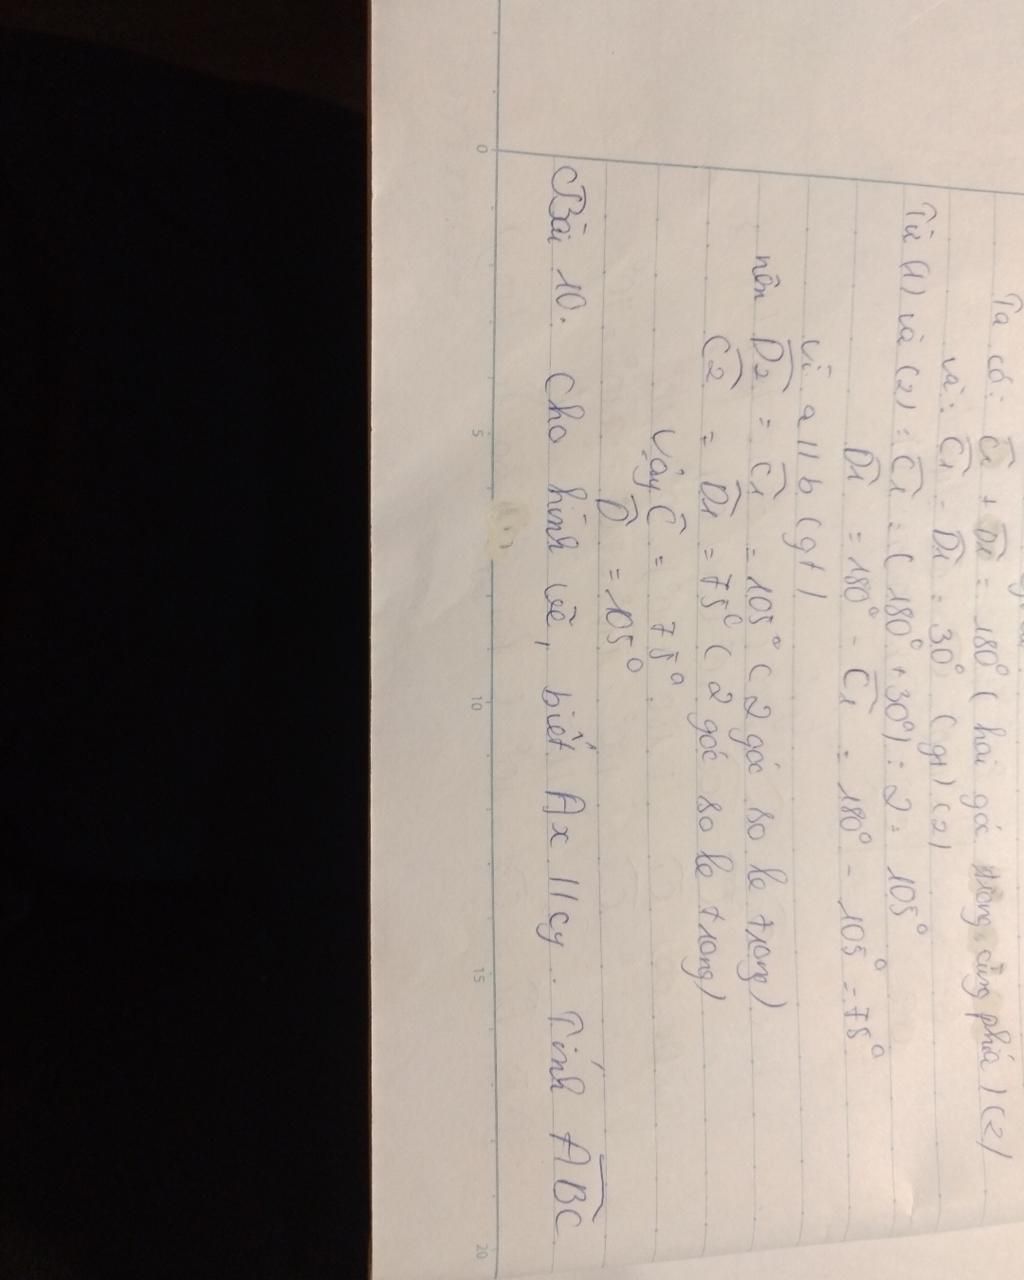 Ta có: C1 + D1 = 180° (hai góc trong cùng phía) (2)
và: C1 - D1 = 30° (gt) (2)
Từ (1) và (2) = C1 = (180° + 30°) : 2 = 105°
D1 = 180° - C1 = 180° - 105° = 75°
Vì a // b (gt)
nên D2 = C1 = 105° (2 góc so le trong)
C2 = D1 = 75° (2 góc so le trong)
Vậy C = 75°
D = 105°
Bài 10. Cho hình vẽ, biết Ax // Cy. Tính ABC
0 5 10 15 20